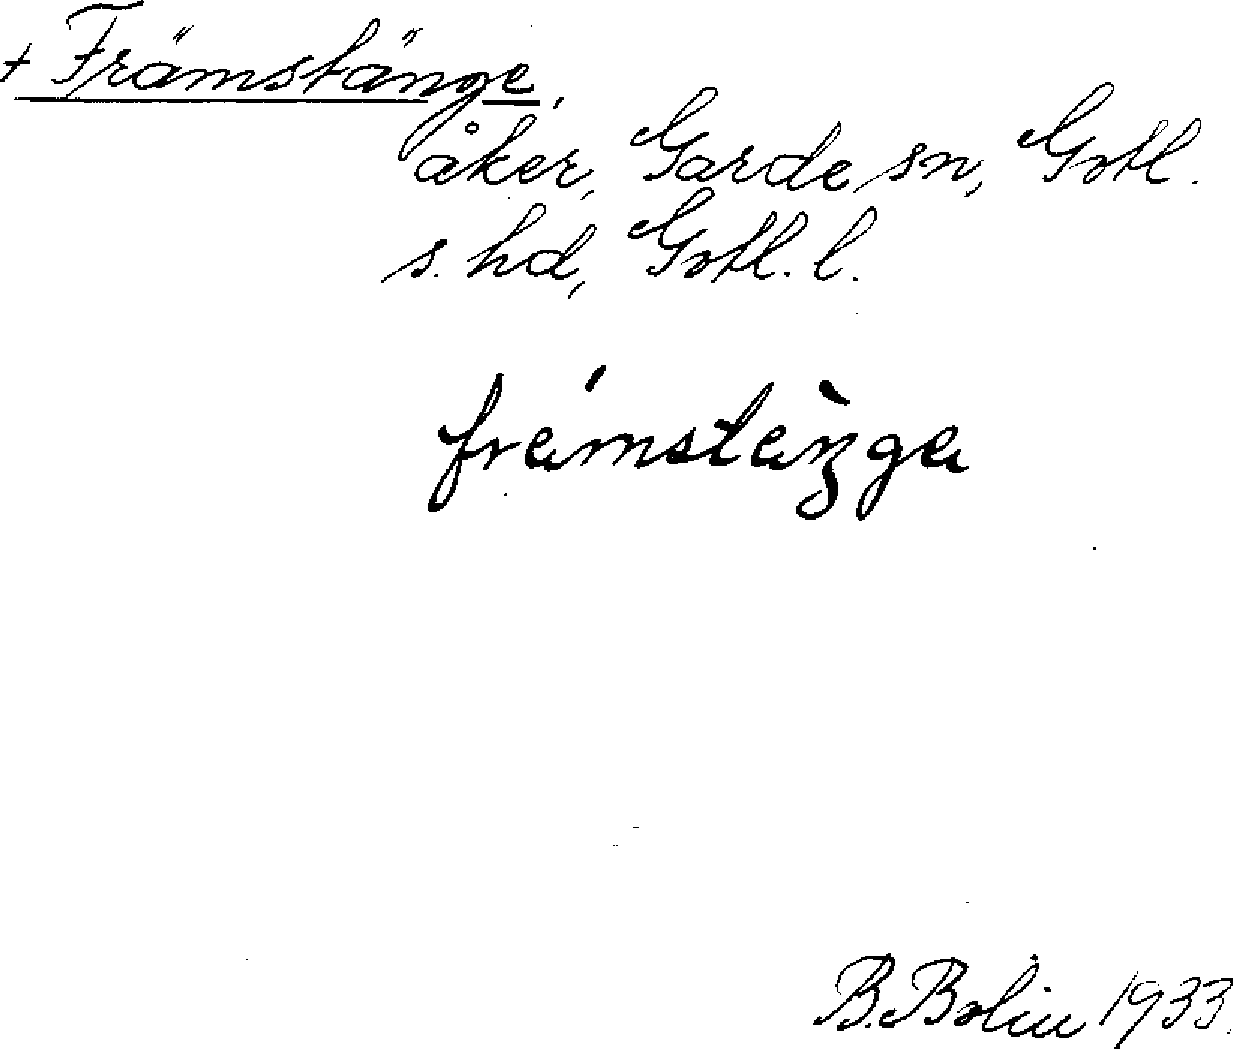 + Främstänge,
åker, Garde sn, Gotl.
s. hd, Gotl. l.
främstänga
B. Bolin 1933.